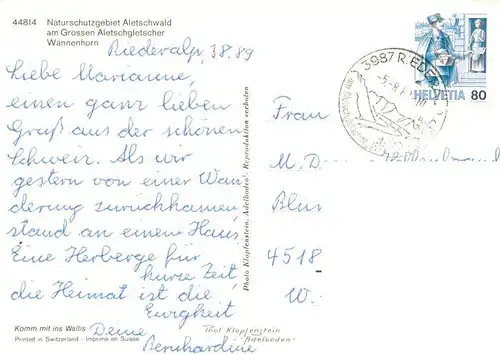 44814 Naturschutzgebiet Aletschwald
am Grossen Aletschgletscher
Wannenhorn
Riederalp, 3.8.89
Liebe Marianne,
einen ganz lieben
Gruß aus der schönen
Schweiz. Als wir
gestern von einer Wan
derung zurückkamen,
stand an einem Haus
Eine Herberge für
kurze Zeit,
die Heimat ist die
Ewigkeit
Deine
Bernhardine
Komm mit ins Wallis
Printed in Switzerland - Imprimé en Suisse
Photo Klopfenstein, Adelboden. Reproduktion verboten
Thol Klopfenstein
"Adelboden"
3987 RIEDER
HELVETIA 80
Frau
M. D
4518
W.